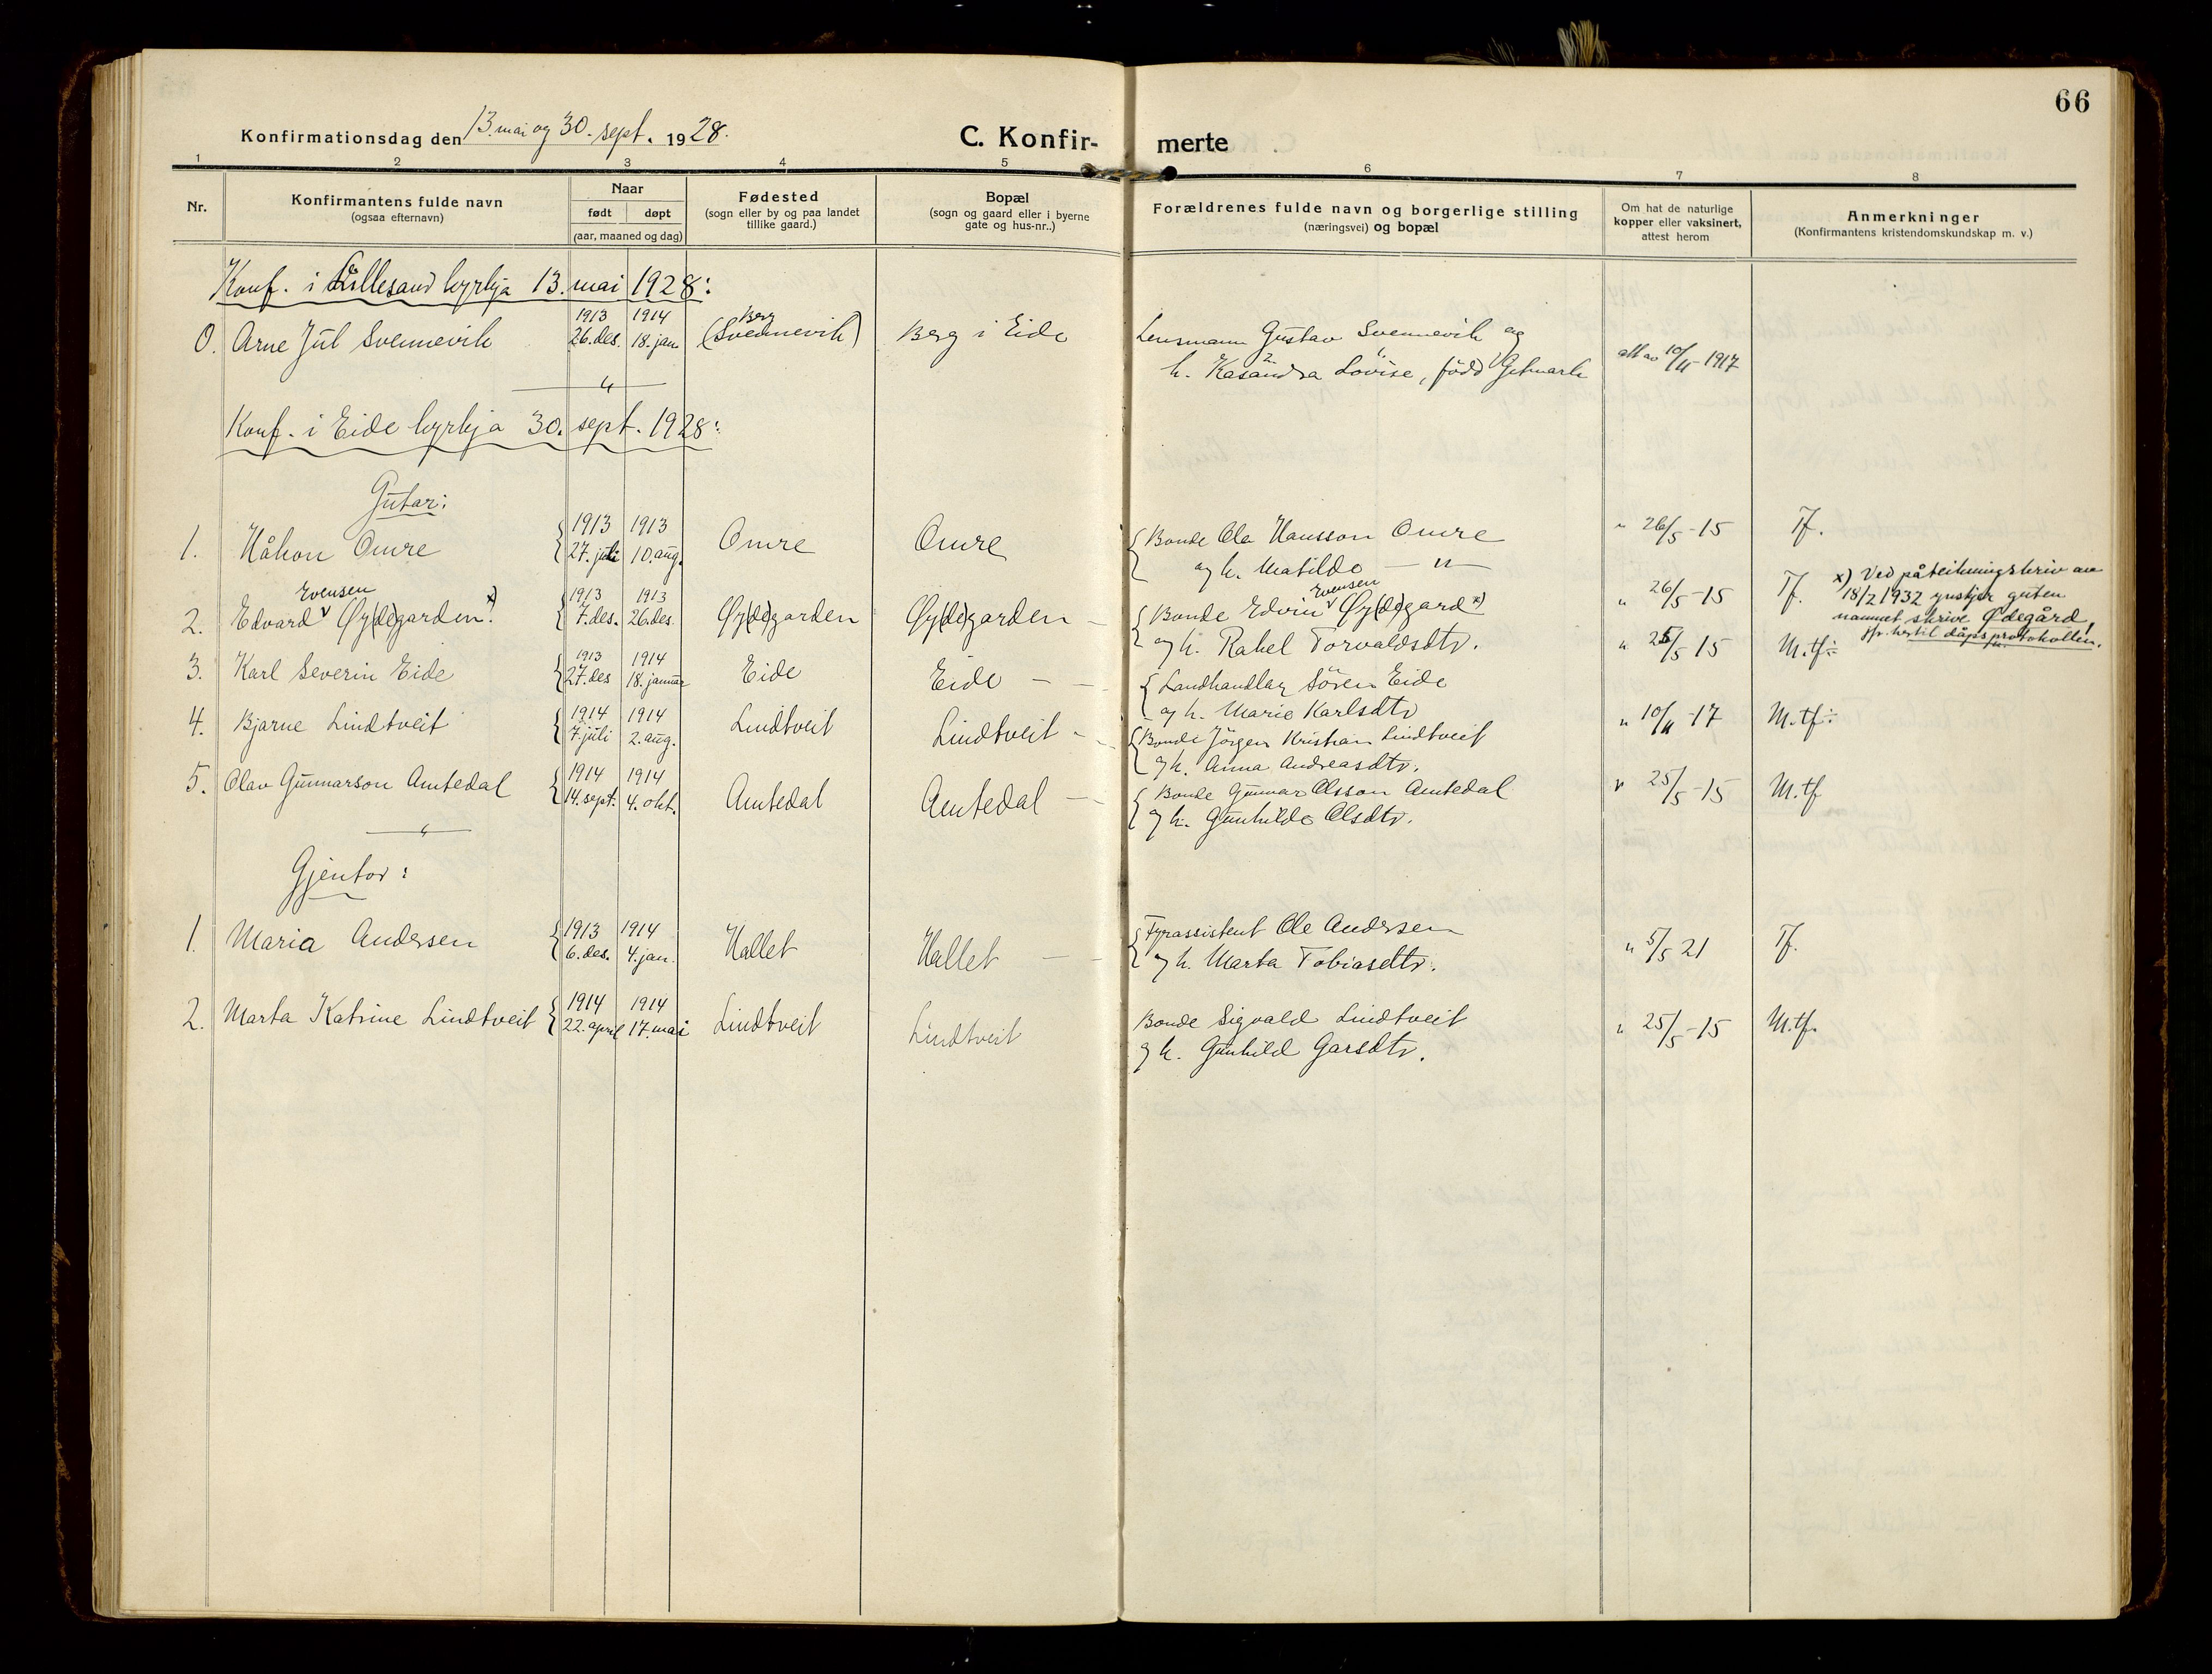 66
Konfirmationsdag den 13. mai og 30. sept. 1928.
C. Konfirmerte
1 2 3 4 5 6 7 8
Nr.
Konfirmantens fulde navn
(ogsaa efternavn)
Naar
født døpt
(aar, maaned og dag)
Fødested
(sogn eller by og paa landet
tillike gaard.)
Bopæl
(sogn og gaard eller i byerne
gate og hus-nr..)
Forældrenes fulde navn og borgerlige stilling
(næringsvei) og bopæl
Om hat de naturlige
kopper eller vaksinert,
attest herom
Anmerkninger
(Konfirmantens kristendomskundskap m. v.)
Konf. i Lillesand kyrkja 13. mai 1928:
0. Arne Jul Svennevik 1913 26. des. 1914 18. jan Berg (Svennevik) Berg i Eide Lensmann Gustav Svennevik og
h. Kasandra Lovise, född Gitmark att av 10/11-1917
Konf. i Eide kyrkja 30. sept. 1928:
Gutar:
1. Håkon Omre 1913 27. juli 1913 10. aug. Omre Omre Bonde Ola Hansson Omre
og h. Matilde — " — " 26/5-15 Tf.
2. Edvard Evensen Øy(de)garden x) 1913 7. des. 1913 26. des. Øy(de)garden Øy(de)garden Bonde Edvin Evensen Øy(de)gard x)
og h. Rakel Torvaldsdtr. " 26/5-15 Tf.
x) Ved påteikningskriv av
18/2 1932 ynskjer guten
namnet skrive Ødegård,
jfr. her til dåpsprotokollen.
3. Karl Severin Eide 1913 27. des 1914 18. januar Eide Eide Landhandlar Sören Eide
og h. Marie Karlsdtr " 25/5 15 M.tf÷
4. Bjarne Lindtveit 1914 7. juli 1914 2. aug. Lindtveit Lindtveit Bonde Jörgen Kristian Lindtveit
og h. Anna Andreasdtr. " 10/11-17 M.tf÷
5. Olav Gunnarson Amtedal 1914 14. sept. 1914 4. okt. Amtedal Amtedal Bonde Gunnar Olsson Amtedal
og h. Gunhilde Olsdtr. " 25/5-15 M.tf
Gjentor:
1. Maria Andersen 1913 6. des. 1914 4. jan. Hallet Hallet Fyrassistent Ole Andersen
og h. Marta Tobiasdtr. " 5/5 21 Tf.
2. Marta Katrine Lindtveit 1914 22. april 1914 17. mai Lindtveit Lindtveit Bonde Sigvald Lindtveit
og h. Gunhild Garsdtr. " 25/5-15 M.tf.